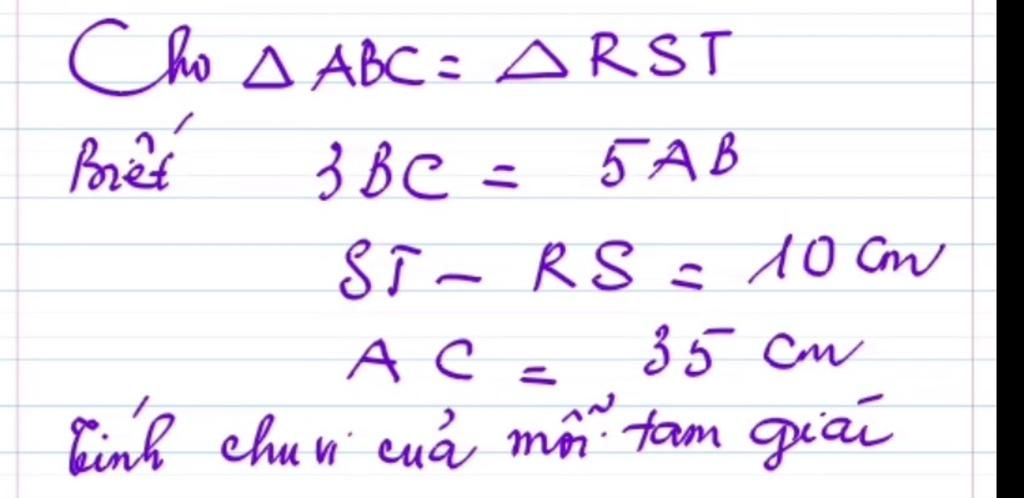 Cho △ ABC = △ RST
Biết 3BC = 5AB
ST - RS = 10 cm
AC = 35 cm
Tính chu vi của mỗi tam giác